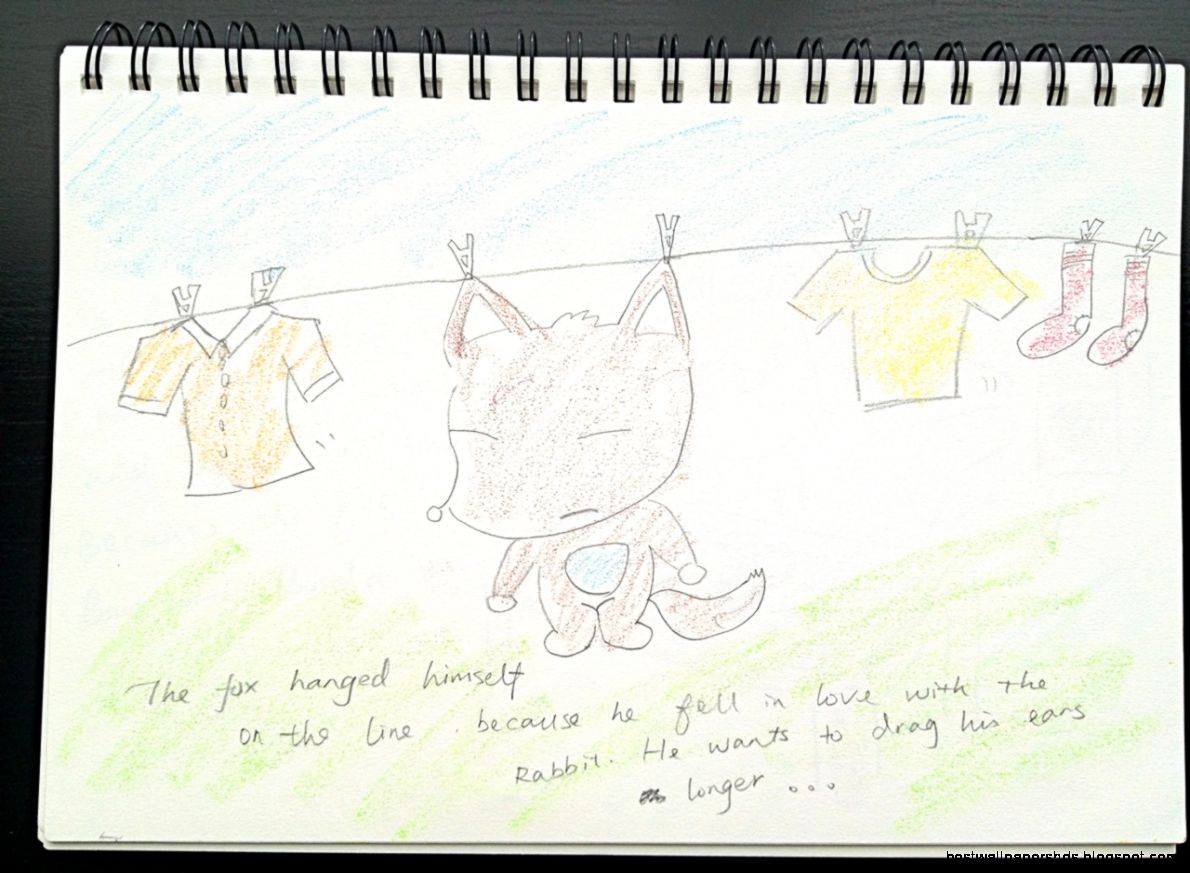 The fox hanged himself
on the line. because he fell in love with the
Rabbit. He wants to drag his ears
longer ...
bestwallpapershds.blogspot.com